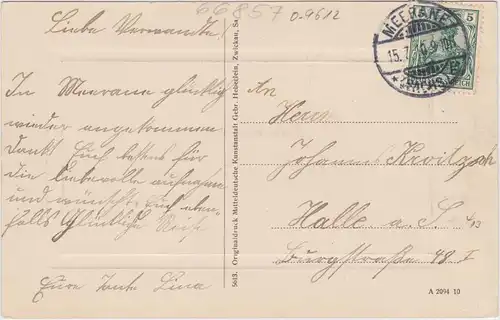 66857
0.9612
Liebe Verwandte!
In Meerane glücklich
wieder angekommen
dankt Euch bestens für
die liebevolle Aufnahme
und wünscht Euch eben-
falls Glückliche Reise
Eure Tante Lina
5613. Originaldruck d. Mitteldeutsche Kunstanstalt Gebr. Heberlein, Zwickau, Sa.
MEERANE
15.7.10.9-10
(SACHS.)
5
An
Herrn
Johannes
Halle a. S.
Burgstraße 48 I
A 2094 10